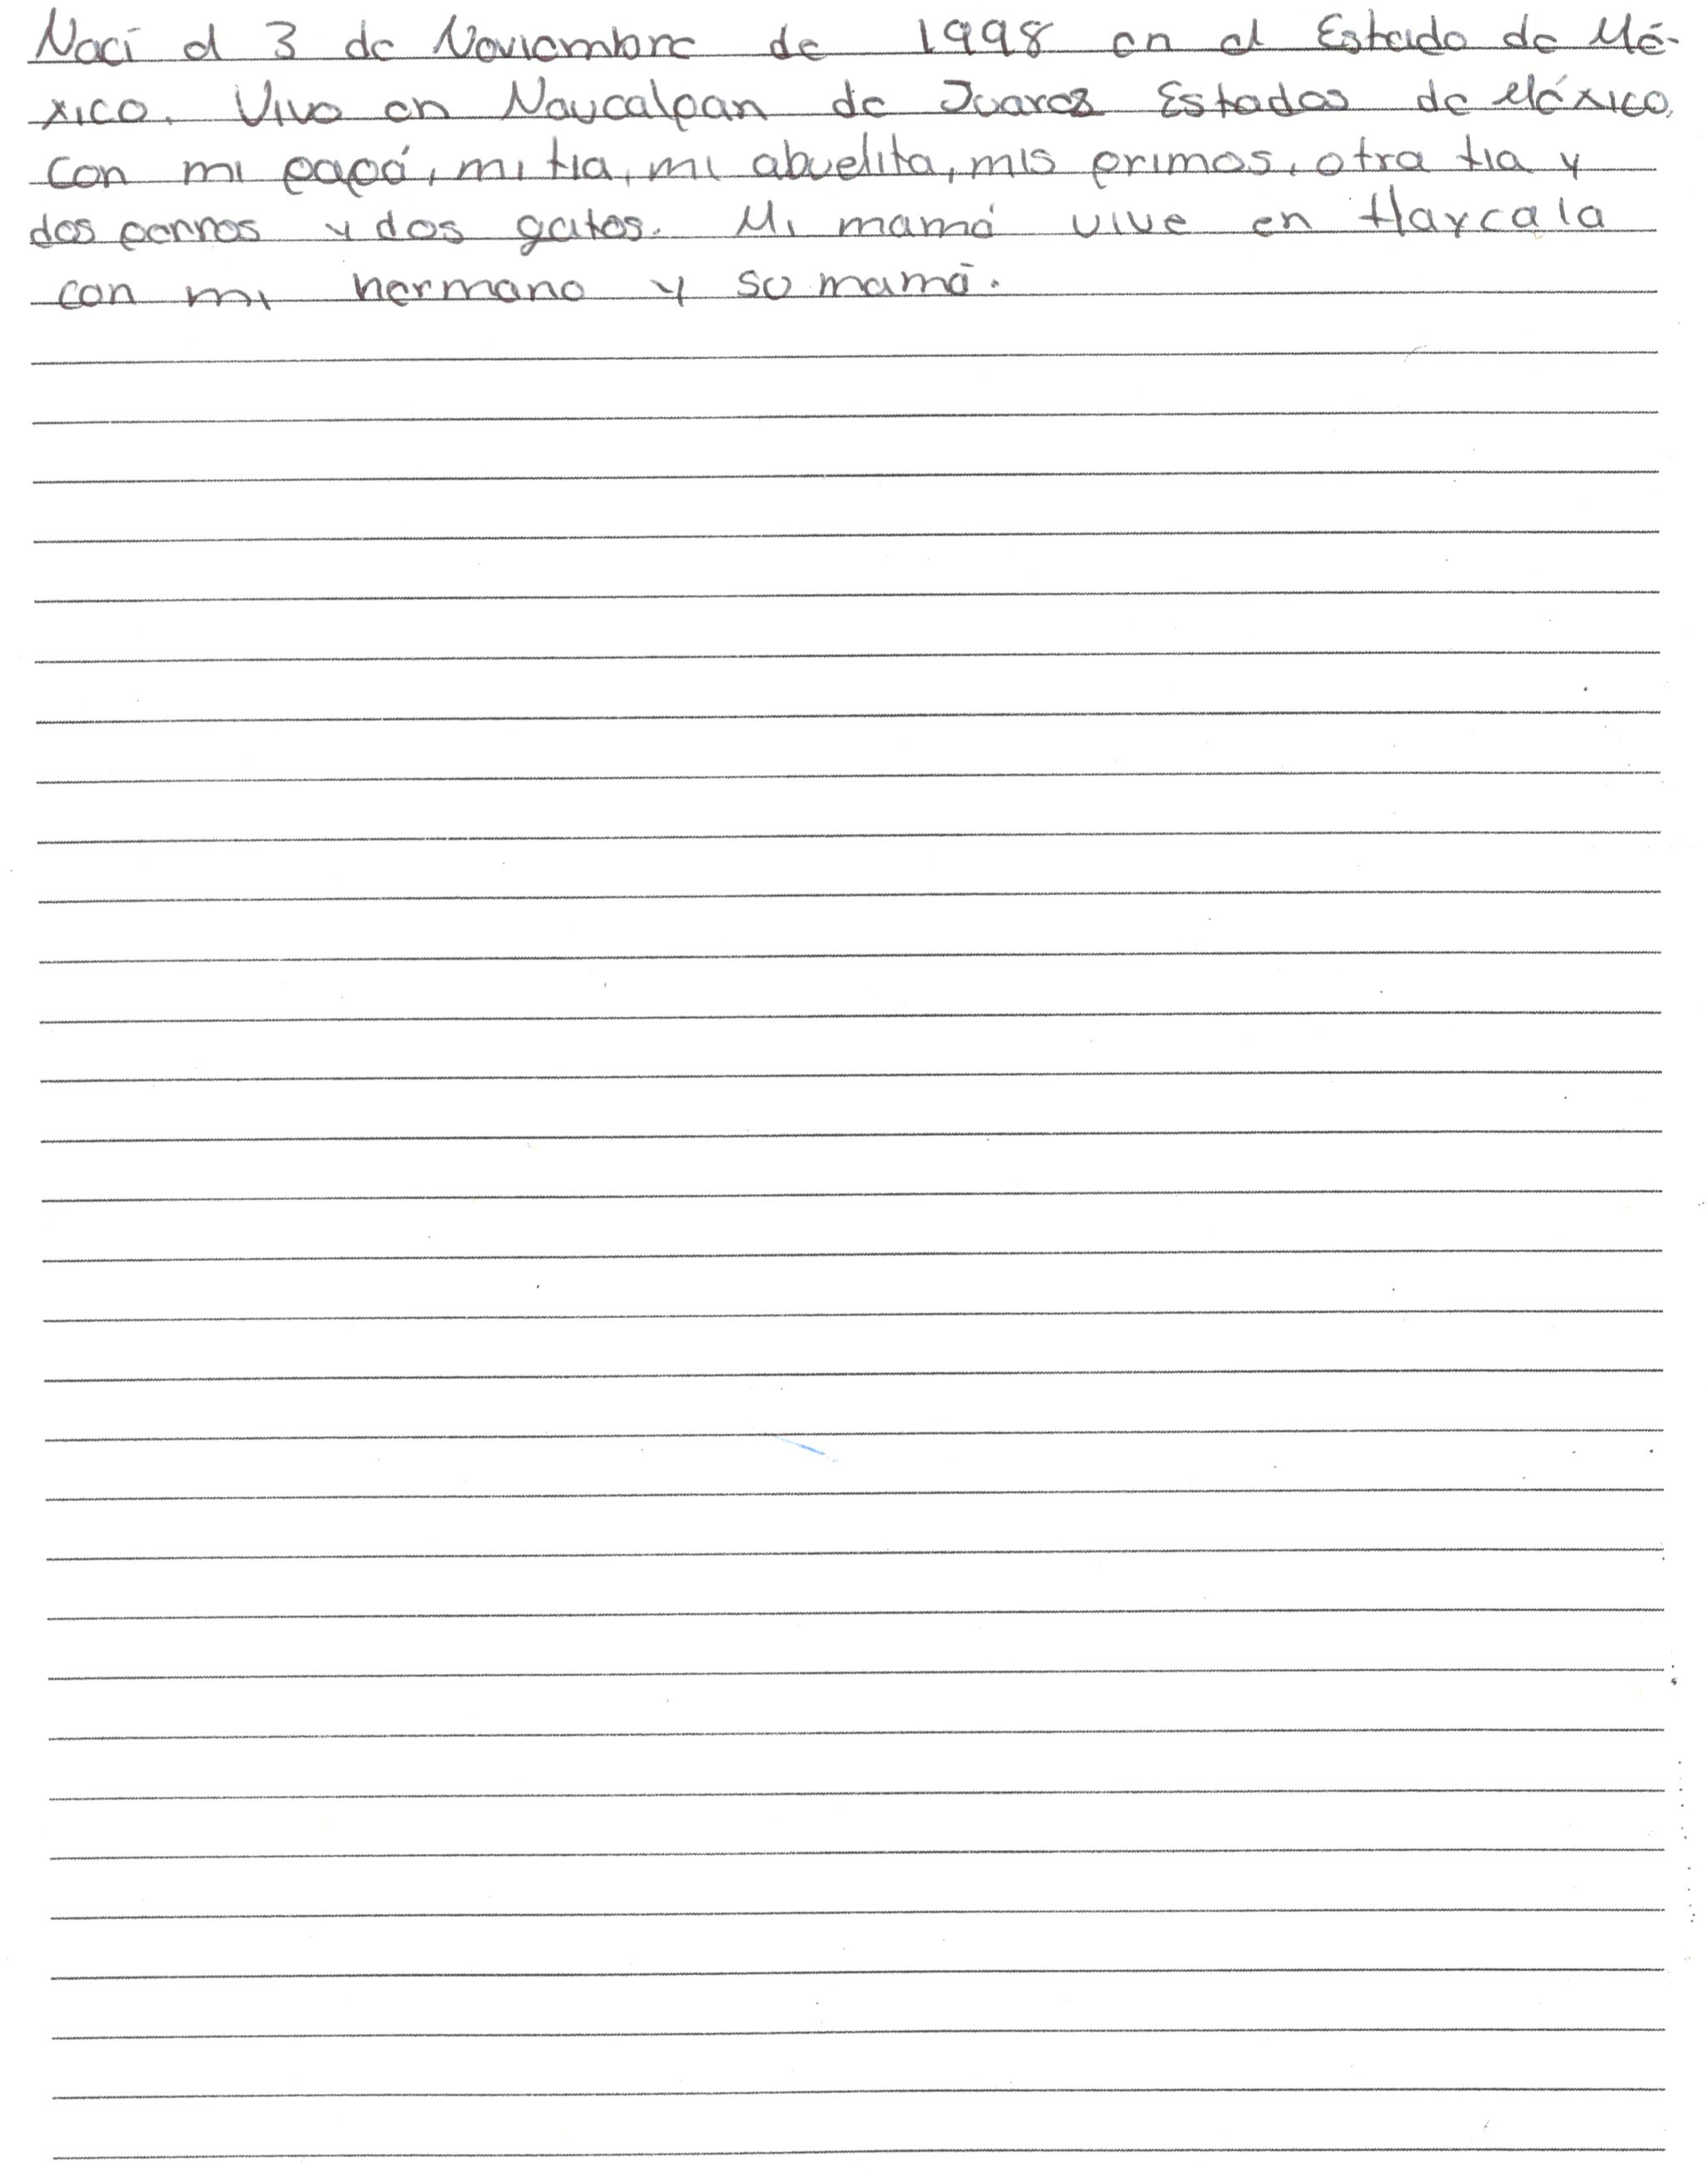 Nací el 3 de Noviembre de 1998 en el Estado de Mé-
xico. Vivo en Naucalpan de Juarez Estados de México,
con mi papá, mi tia, mi abuelita, mis primos, otra tia y
dos perros y dos gatos. Mi mamá vive en tlaxcala
con mi hermano y su mamá.